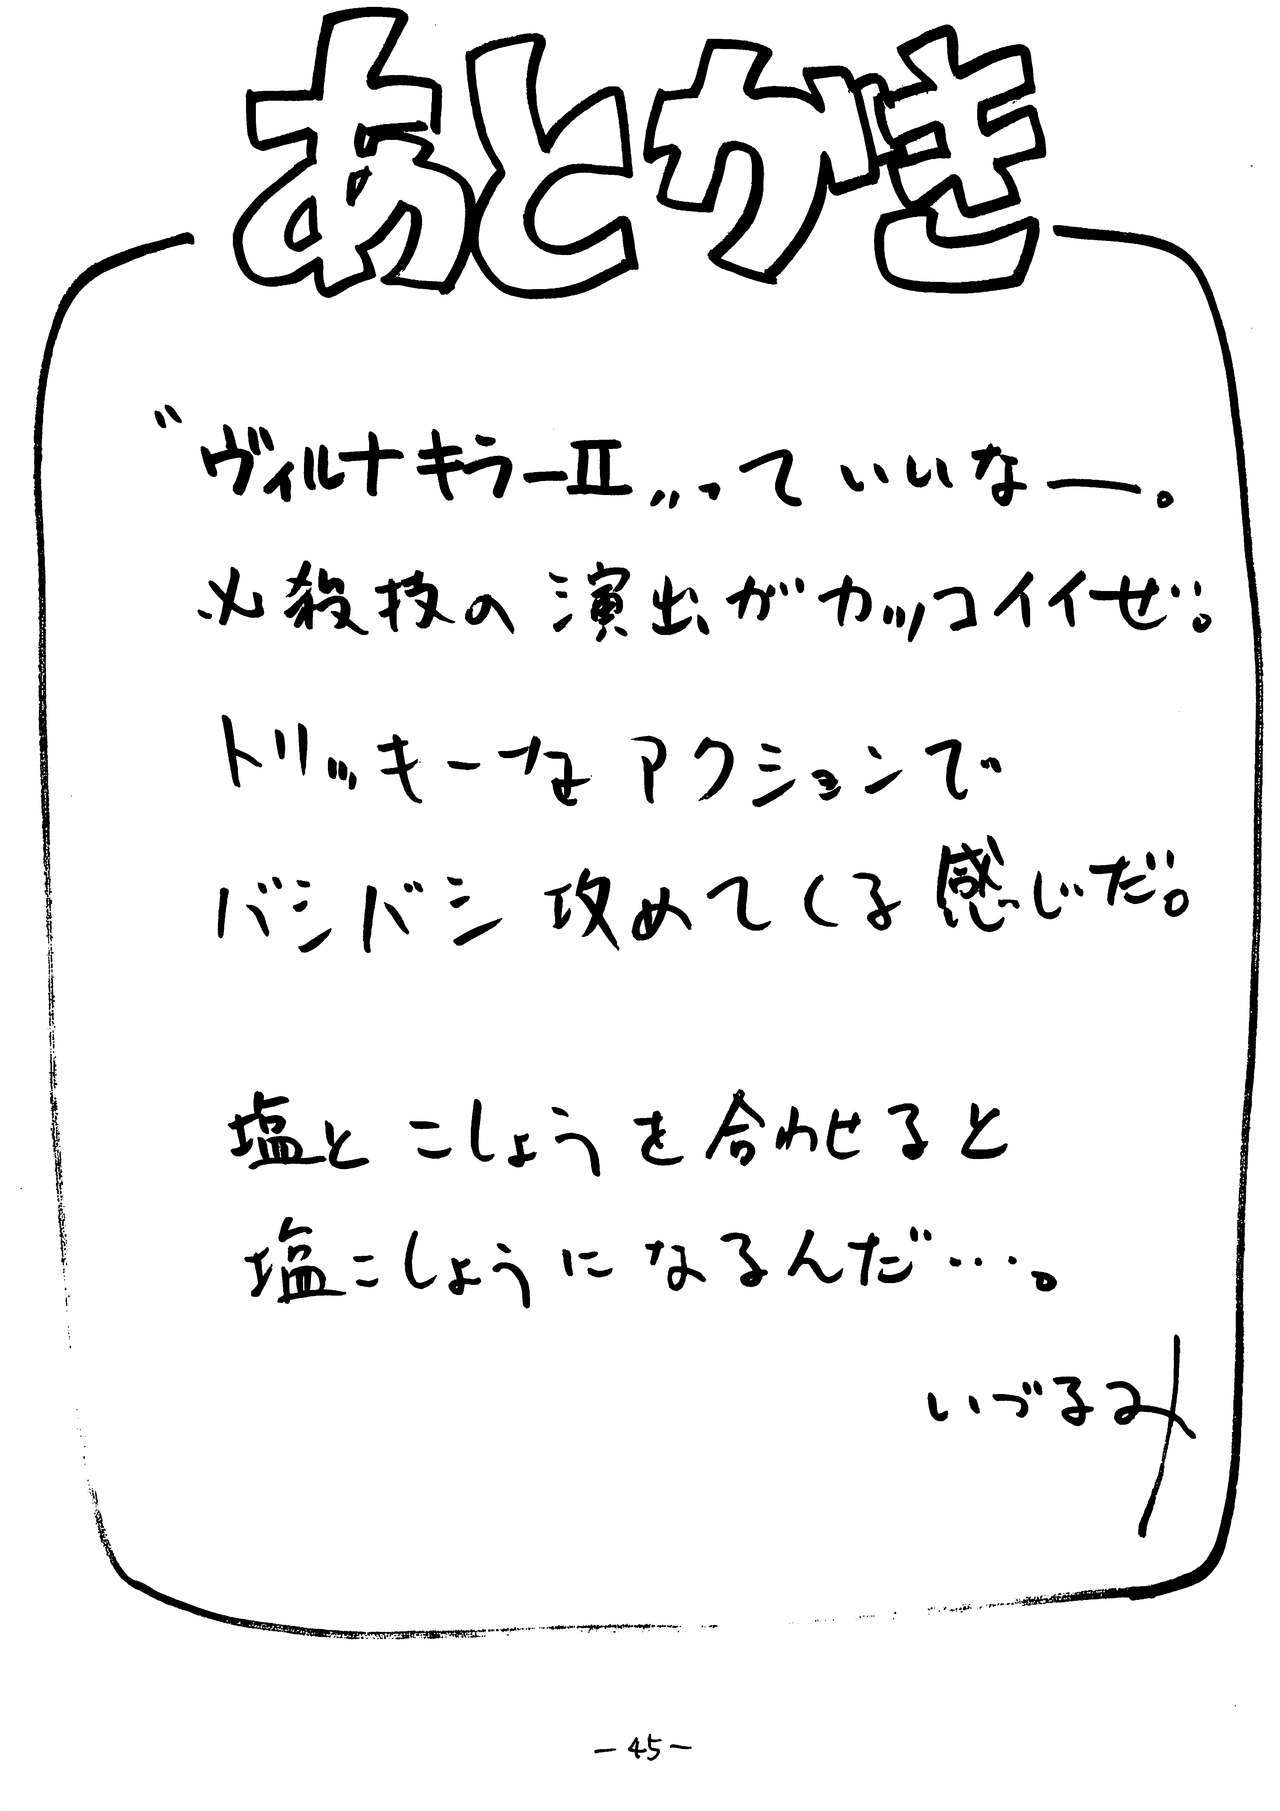 あとがき
〝ヴィルナキラーⅡ〟っていいなー。
必殺技の演出がカッコイイぜ。
トリッキーなアクションで
バシバシ攻めてくる感じだ。
塩とこしょうを合わせると
塩こしょうになるんだ…。
いづるみ
-45-